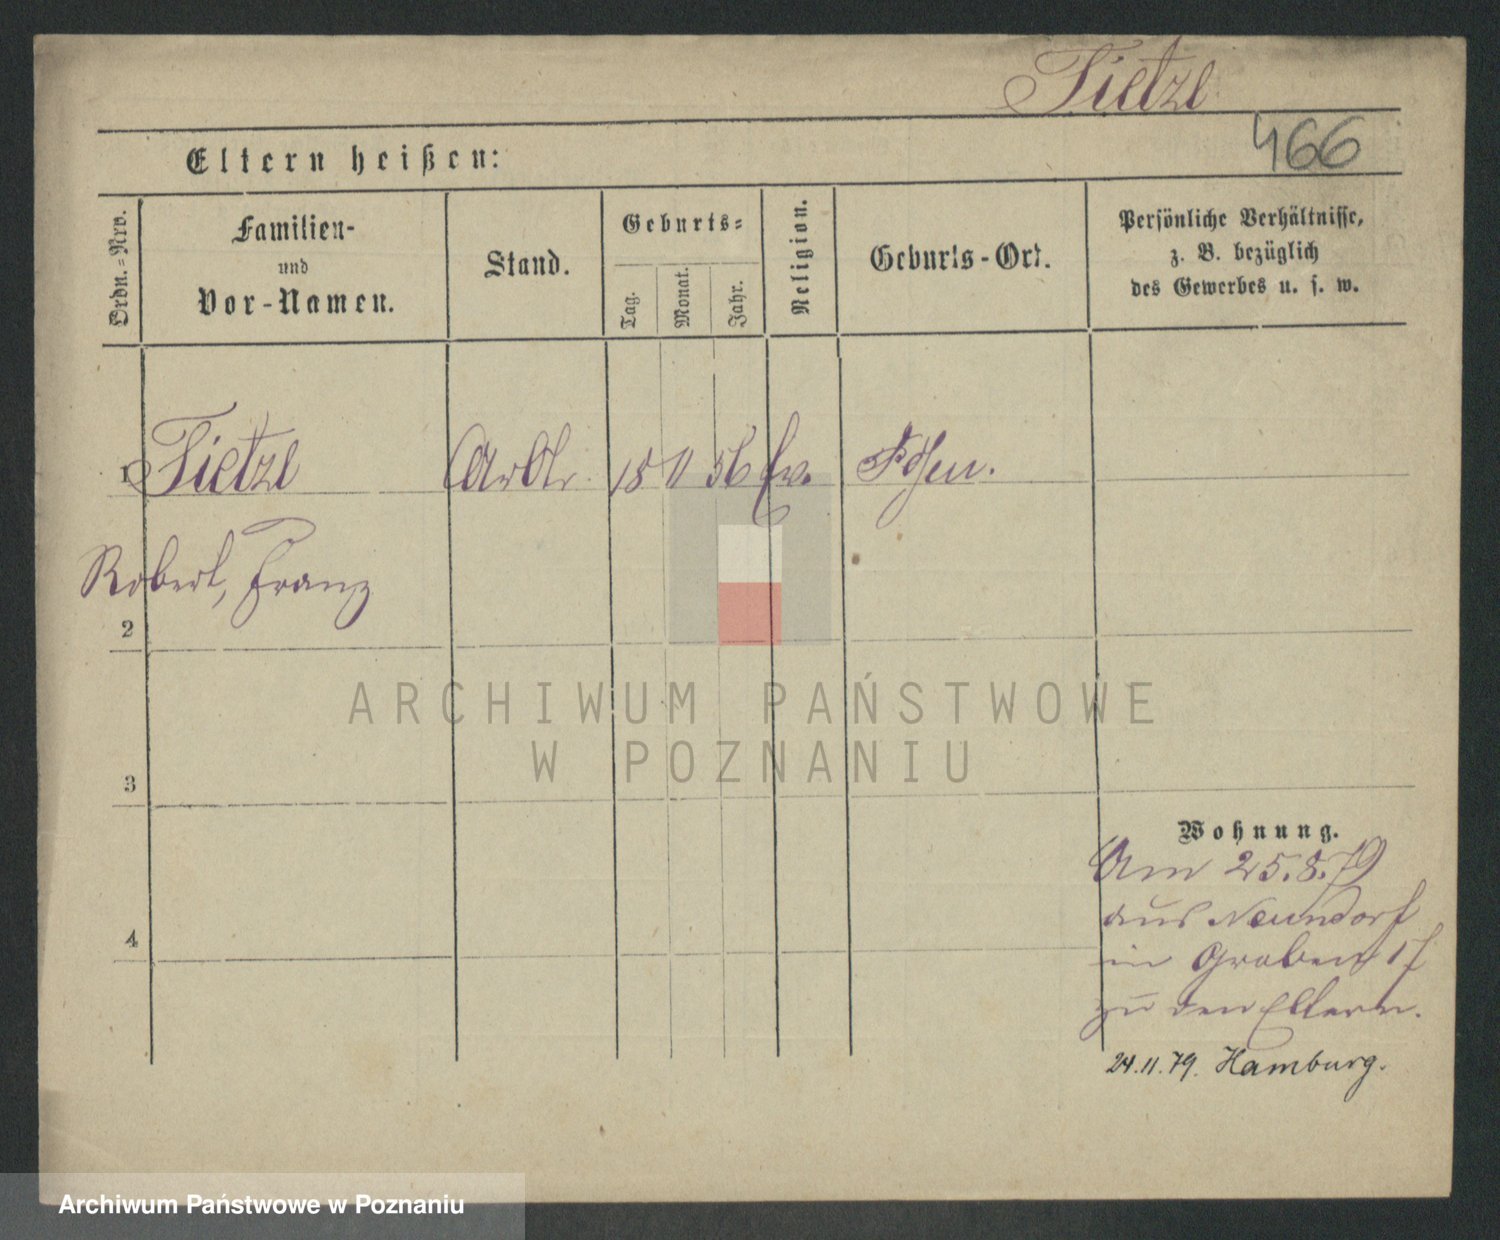 Tietze
466
Eltern heißen:
Ordn.=Nrv.
Familien-
und
Vor-Namen.
Stand.
Geburts=
Tag.
Monat.
Jahr.
Religion.
Geburts-Ort.
Persönliche Verhältnisse,
z. B. bezüglich
des Gewerbes u. s. w.
1 Tietze Arbtr 18 11 56 Ev. Posen.
Robert, Franz
2
ARCHIWUM PAŃSTWOWE
W POZNANIU
3
Wohnung.
Am 25.8.79
aus Neundorf
4
in Graben 17
zu den Eltern.
24.11.79. Hamburg.
Archiwum Państwowe w Poznaniu